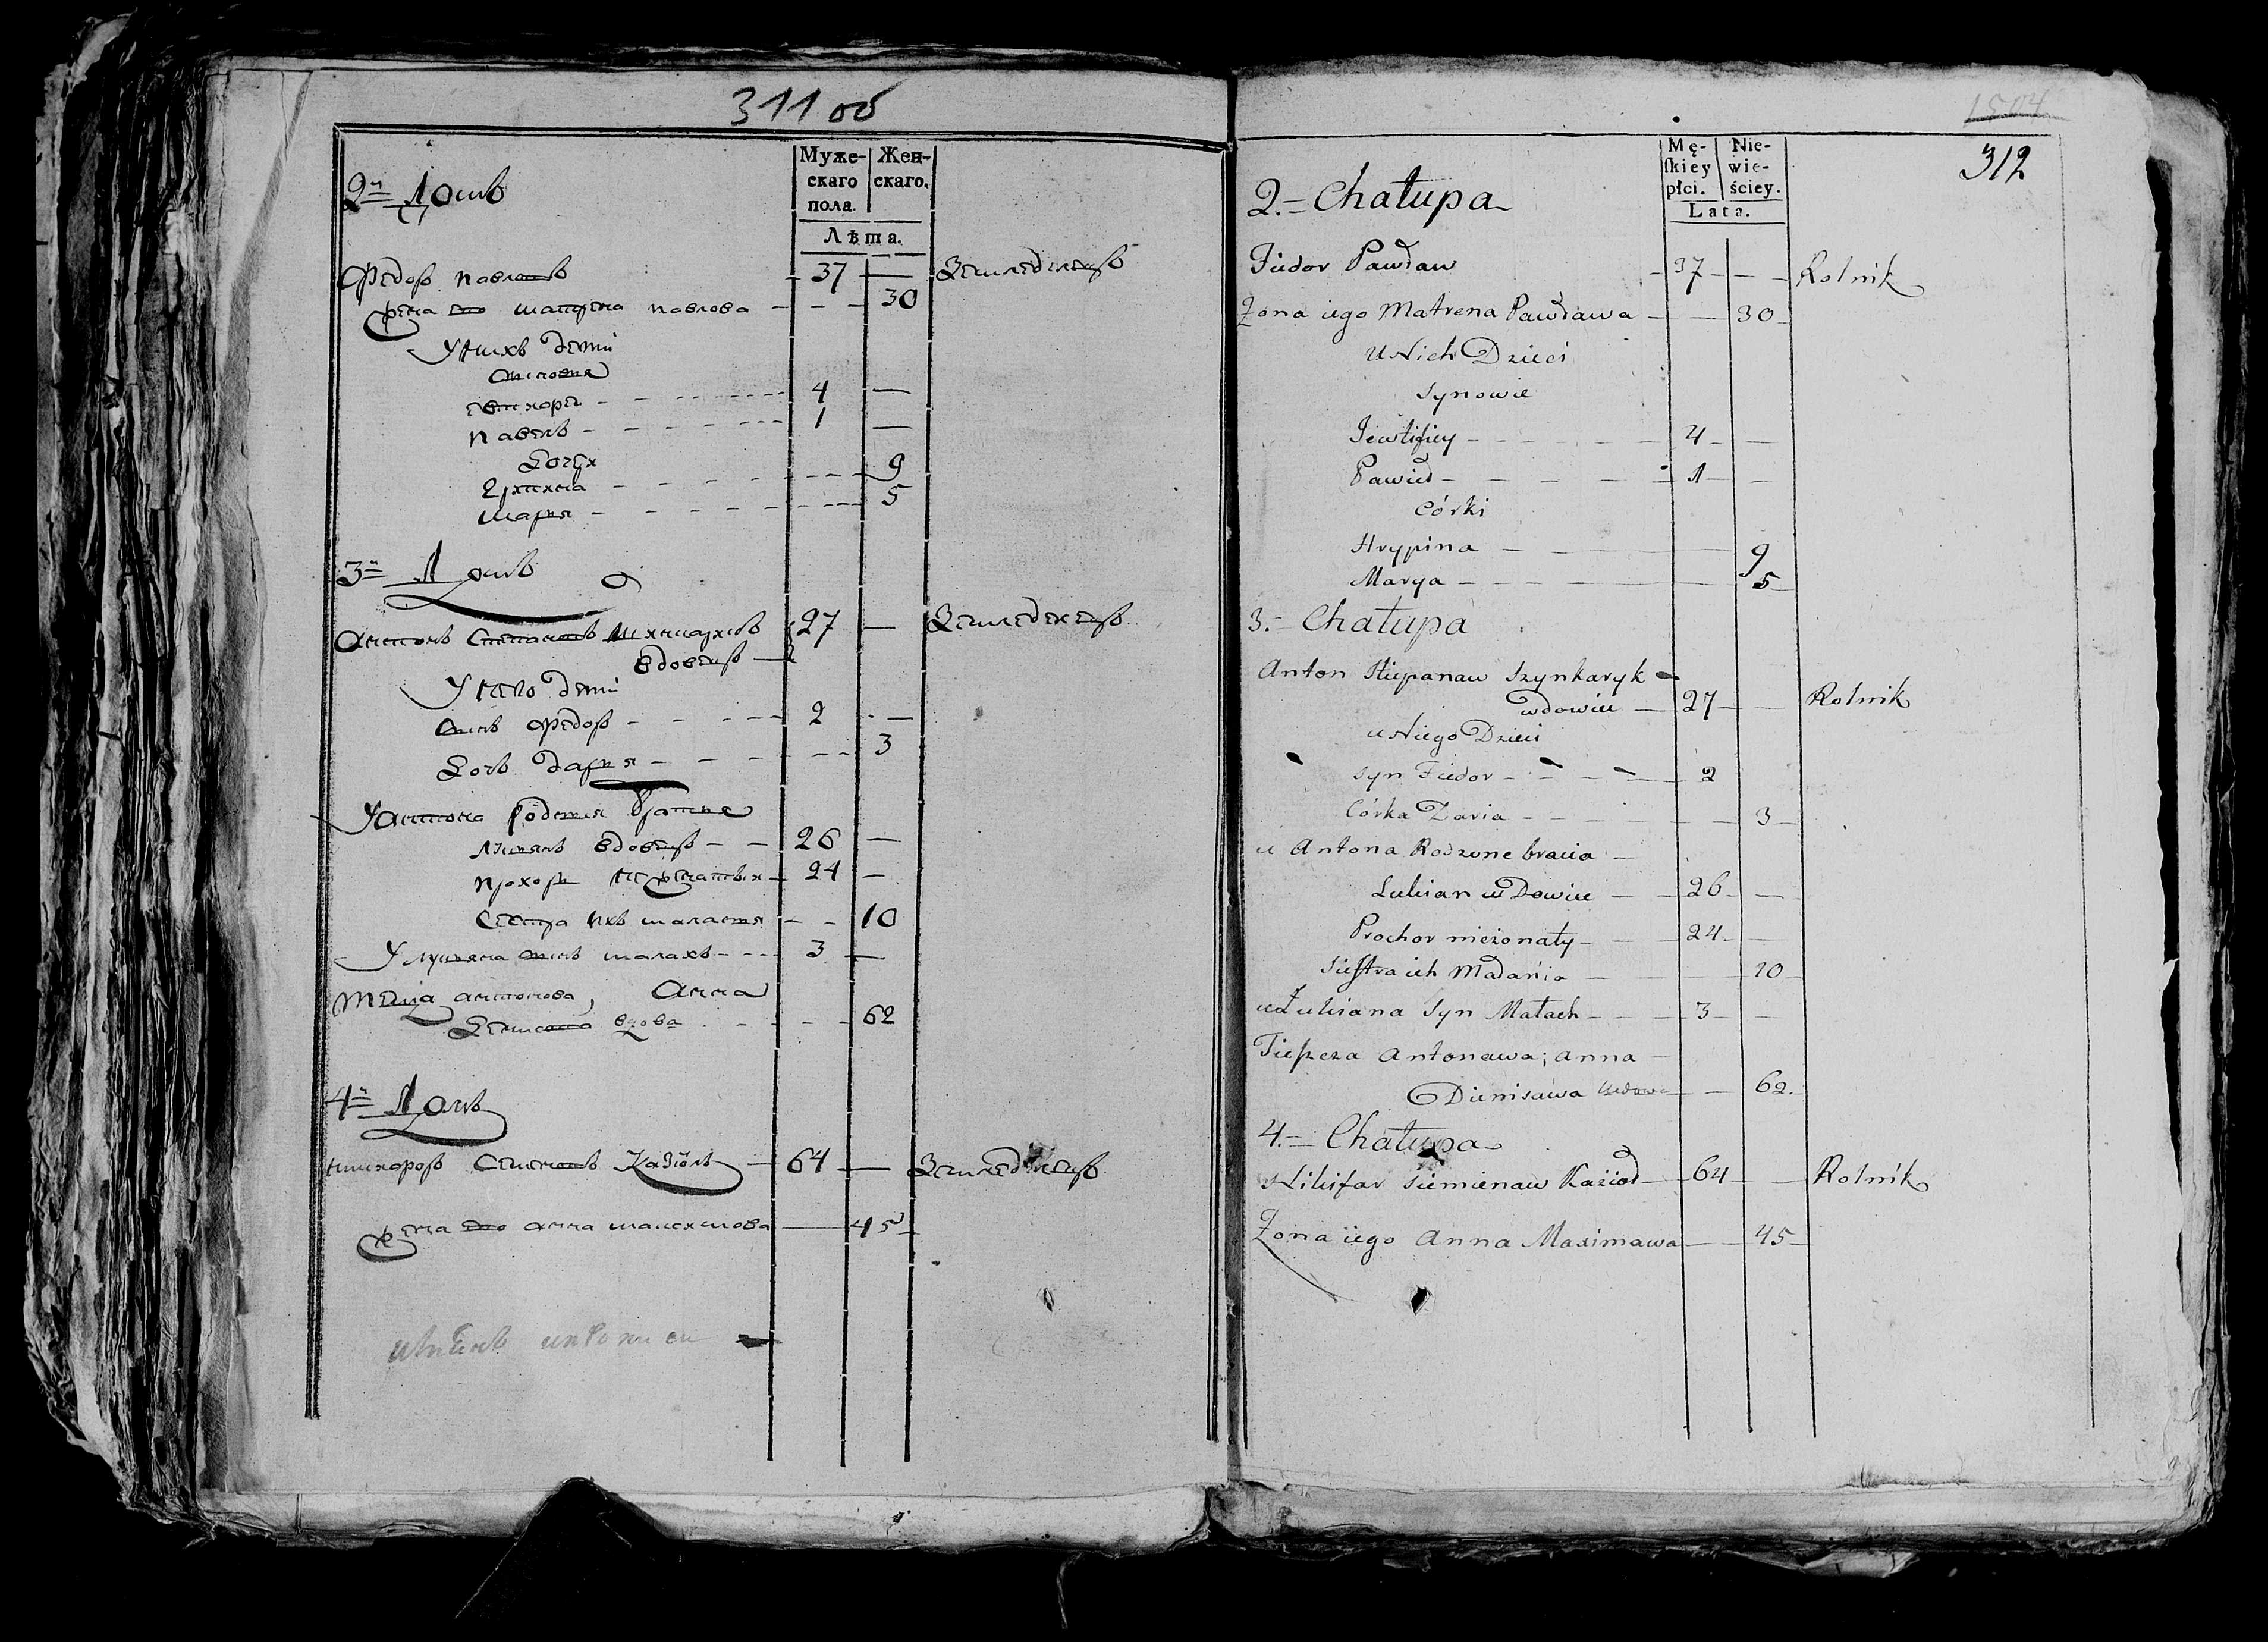 311 об
Муже-
скаго
пола.
Жен-
скаго.
Лѣта.
2й Домъ
Федоръ Павловъ 37 — Земледелецъ
Жена Его Матрена Павлова — 30
У нихъ Дети
Сыновя
4 —
Павелъ 1 —
Дочери
9
Марья 5
3й Домъ
Антонъ Степановъ 27 — Земледелецъ
вдовецъ
У него Дети
Сынъ Федоръ 2 —
Дочь Дарья 3
У Антона Родныя Братья
Лукьянъ вдовецъ 26 —
Прохоръ 24 —
Сестра ихъ 10
У Лукьяна сынъ Малахъ 3 —
Теща Антонова, Анна
вдова 62
4й Домъ
Никифоръ Семеновъ Казiолъ 64 — Земледелецъ
Жена Его Анна Максимова 45
1504
312
Mę-
ſkiey
płci.
Nie-
wie-
ściey.
Lata.
2. Chałupa
Fiedor Pawław 37 — Rolnik
Żona iego Matrena Pawława — 30
u Nich Dzieci
Synowie
Jewtifiey 4 —
Pawieł 1 —
Córki
Hrypina 9
Marya 5
3. Chałupa
Anton Stiepanaw Szynkaryk
wdowiec 27 — Rolnik
u Niego Dzieci
Syn Fiedor 2
Córka Daria 3
u Antona Rodzone bracia
Lukian wDowiec 26 —
Prochor nieżonaty 24 —
Siestra ich Małańia 10
u Łukiana Syn Małach 3 —
Tieſzcza Antonawa; Anna
Dienisawa wdowa 62.
4. Chałupa
Nikifar Siemienaw Kazioł 64 — Rolnik
Żona iego Anna Maximawa 45